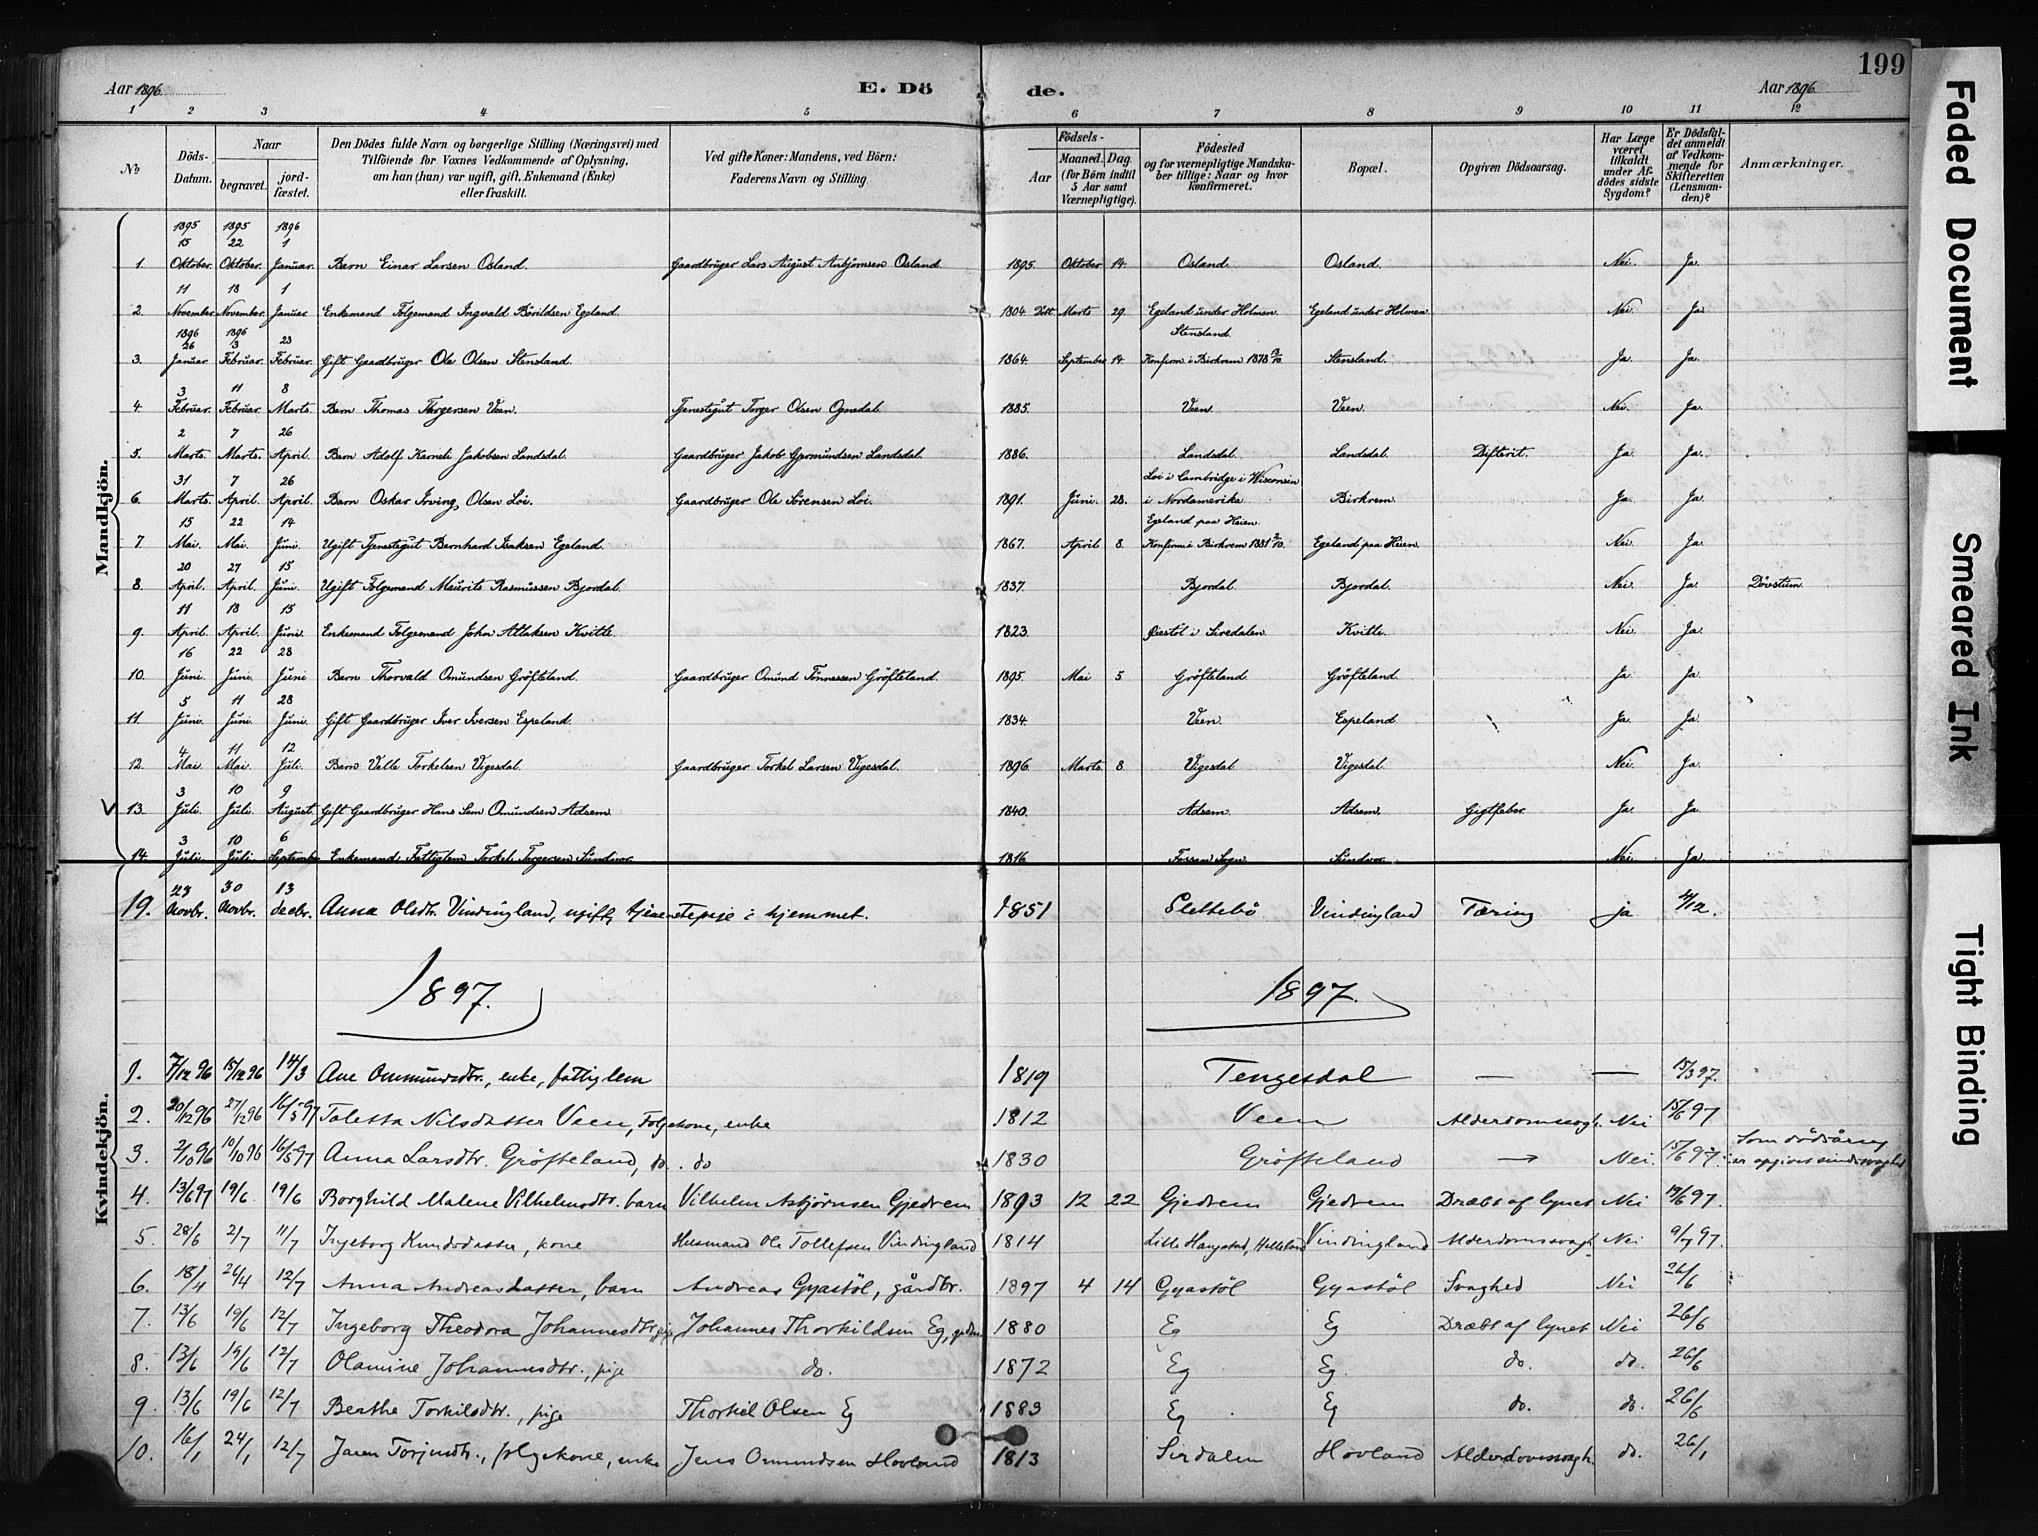 199
Aar 1896. E. Dö de. Aar 1896.
1 2 3 4 5 6 7 8 9 10 11 12
No Döds-Datum. Naar begravet. jordfæstet. Den Dödes fulde Navn og borgerlige Stilling (Næringsvei) med Tilföiende for Voxnes Vedkommende af Oplysning, om han (hun) var ugift, gift, Enkemand (Enke) eller fraskilt. Ved gifte Koner: Mandens, ved Börn: Faderens Navn og Stilling. Födsels- Aar Maaned. Dag. (for Börn indtil 5 Aar samt Værnepligtige). Födested og for værnepligtige Mandskaber tillige: Naar og hvor konfirmeret. Bopæl. Opgiven Dödsaarsag. Har Læge været tilkaldt under Afdödes sidste Sygdom? Er Dödsfaldet anmeldt af Vedkommende for Skifteretten (Lensmanden)? Anmærkninger.
Mandkjön.
1895 1895 1896
15 22 1
1. Oktober. Oktober. Januar. Barn Einar Larsen Osland. Gaardbruger Lars August Asbjørnsen Osland. 1895. Oktober 14. Osland. Osland. Nei. Ja.
11 18 1
2. November. November. Januar. Enkemand Folgemand Ingvald Bårildsen Egeland. 1804. Døbt Marts 29. Egeland under Holmen. Egeland under Holmen. Nei. Ja.
1896 1896
26 3 23 Stensland.
3. Januar. Februar. Februar. Gift Gaardbruger Ole Olsen Stensland. 1864. September 14. Konfirm. i Birkrem 1878 Stensland. Ja. Ja.
3 11 8
4. Februar. Februar. Marts. Barn Thomas Torgersen Veen. Tjenestegut Torger Olsen Ognedal. 1885. Veen. Veen. Nei. Ja.
2 7 26
5. Marts. Marts. April. Barn Adolf Korneli Jakobsen Landsdal. Gaardbruger Jakob Gjermundsen Landsdal 1886. Landsdal. Landsdal. Difterit. Ja. Ja.
31 7 26 Loi i Cambridge i Wisconsin
6. Marts. April. April. Barn Oskar Irving Olsen Loi. Gaardbruger Ole Sørensen Loi. 1891. Juni. 28. i Nordamerika. Birkrem. Ja. Ja.
15 22 14 Egeland paa Heien.
7 Mai. Mai. Juni. Ugift Tjenestegut Bernhard Isaksen Egeland. 1867. April 8. Konfirm. i Birkrem 1881 2/10. Egeland paa Heien. Nei. Ja.
20 27 15
8. April. April. Juni. Ugift Folgemand Maurits Rasmussen Bjordal. 1837. Bjordal. Bjordal. Nei. Ja. Døvstum.
11 18 15
9. April. April. Juni. Enkemand Folgemand John Atlaksen Kvitle. 1823. Øiestøl i Siredalen. Kvitle. Nei. Ja.
16 22 28
10. Juni. Juni. Juni Barn Thorvald Omundsen Gröfteland. Gaardbruger Omund Tönnessen Gröfteland 1895. Mai 5 Gröfteland Gröfteland. Ja. Ja.
5 11 28
11. Juni. Juni. Juni. Gift Gaardbruger Iver Iversen Espeland. 1834. Veen. Espeland. Ja. Ja.
4 11 12
12. Mai. Mai. Juli. Barn Valle Torkelsen Vigesdal. Gaardbruger Torkel Larsen Vigesdal. 1896. Marts. 8. Vigesdal. Vigesdal. Nei. Ja.
3 10 9
V 13. Juli. Juli. August. Gift Gaardbruger Hans Sem Omundsen Adsem. 1840. Adsem. Adsem. Gigtfeber. Ja. Ja.
3 10 6
14. Juli. Juli. September. Enkemand Fattiglem Torkel Torgersen Sundvor. 1816. Fossan Sogn. Sundvor. Nei. Ja.
Kvindekjön.
23 30 13
19. Novbr. Novbr. decbr. Anna Olsdtr. Vindingland, ugift, tjenestepige i hjemmet. 1851 Slettebö Vindingland Tæring ja 4/12.
1897. 1897.
1. 7/12 96 15/12 96 14/3 Ane Ommundsdtr., enke, fattiglem 1819 Tengesdal — — 15/3 97.
2. 20/12 96 27/12 96 16/5 97 Taletta Nilsdatter Veen, Folgekone, enke 1812 Veen Alderdomssvagh. Nei 15/6 97
3. 2/10 96 10/10 96 16/5 97 Anna Larsdtr. Gröfteland, do. do 1830 Gröfteland → Nei. 15/6 97. Som dödsårsag er opgivet sindssvaghed
4. 13/6 97 19/6. 19/6 Borghild Malene Vilhelmsdtr. barn Vilhelm Asbjörnsen Gjedrem 1893 12 22 Gjedrem Gjedrem Dræbt af lynet Nei 19/6 97.
5. 28/6 2/7 11/7 Ingeborg Knudsdatter, kone Husmand Ole Tollefsen Vindingland 1814 Lille Haugstad, Helleland Vindingland Alderdomssvagh. Nei 9/7 97.
6. 18/4 26/4 12/7 Anna Andreasdatter, barn Andreas Gyastöl, gårdbr. 1897 4 14 Gyastöl Gyastöl Svaghed Nei 26/6
7. 13/6 19/6 12/7 Ingeborg Theodora Johannesdtr., pige Johannes Thorkildsen Eg, gårdbr. 1880 Eg Eg Dræbt af lynet Nei 26/6
8. 13/6 19/6 12/7 Olamine Johannesdtr., pige do. 1872 Eg Eg. do. do. 26/6
9. 13/6 19/6 12/7 Berthe Torkilsdtr., pige Thorkel Olsen Eg 1883 Eg Eg do. do. 26/6
10. 16/1 24/1 12/7 Jaren Torjusdtr., folgekone, enke Jens Ommundsen Hovland 1813 Sirdalen Hovland Alderdomssvagh. do. 26/1
Faded Document
Smeared Ink
Tight Binding